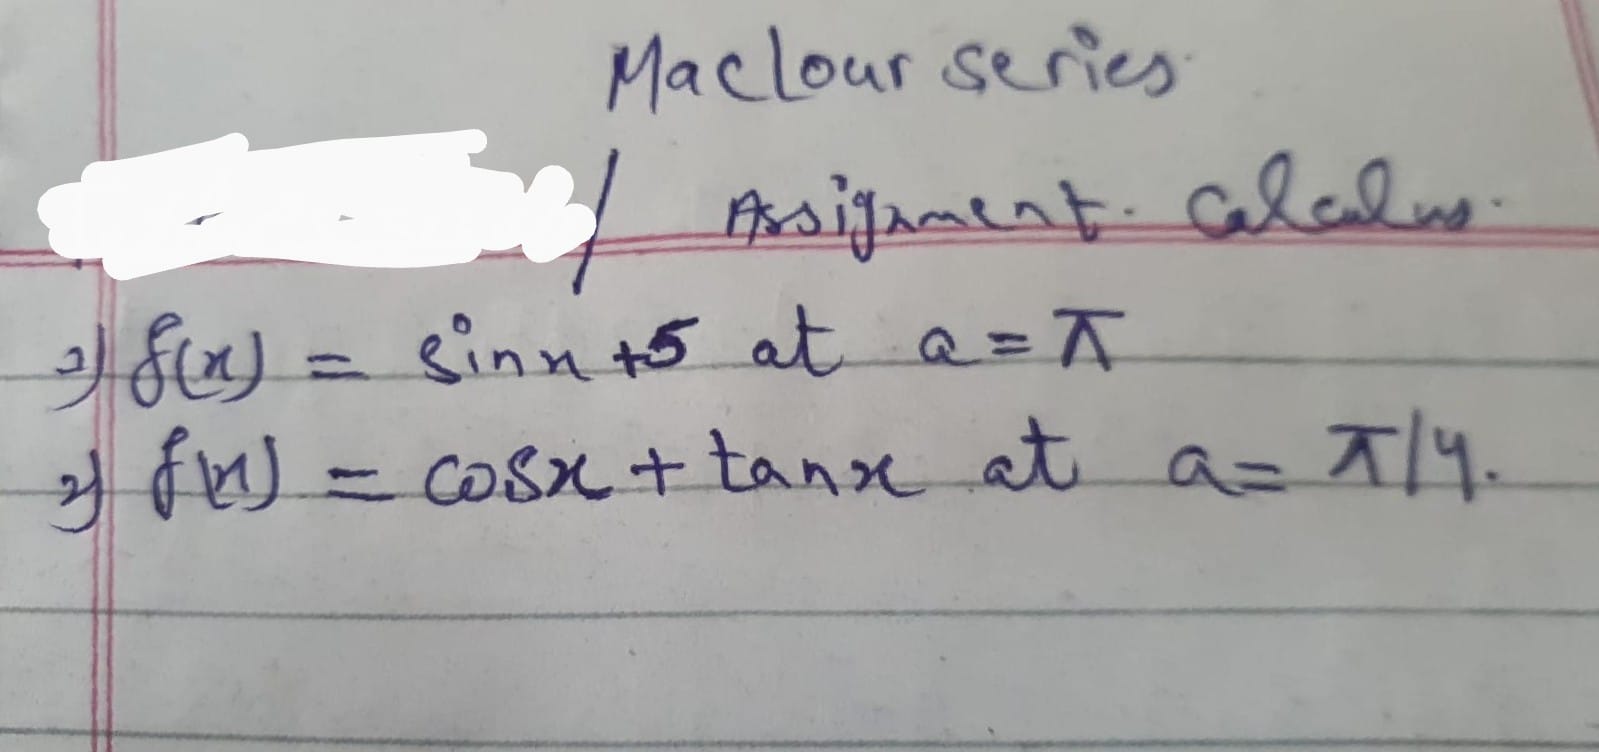 Maclour series.
/ Assignment. Calculus.
1) f(x) = sinx +5 at a = π
2) f(x) = cosx + tanx at a = π/4.